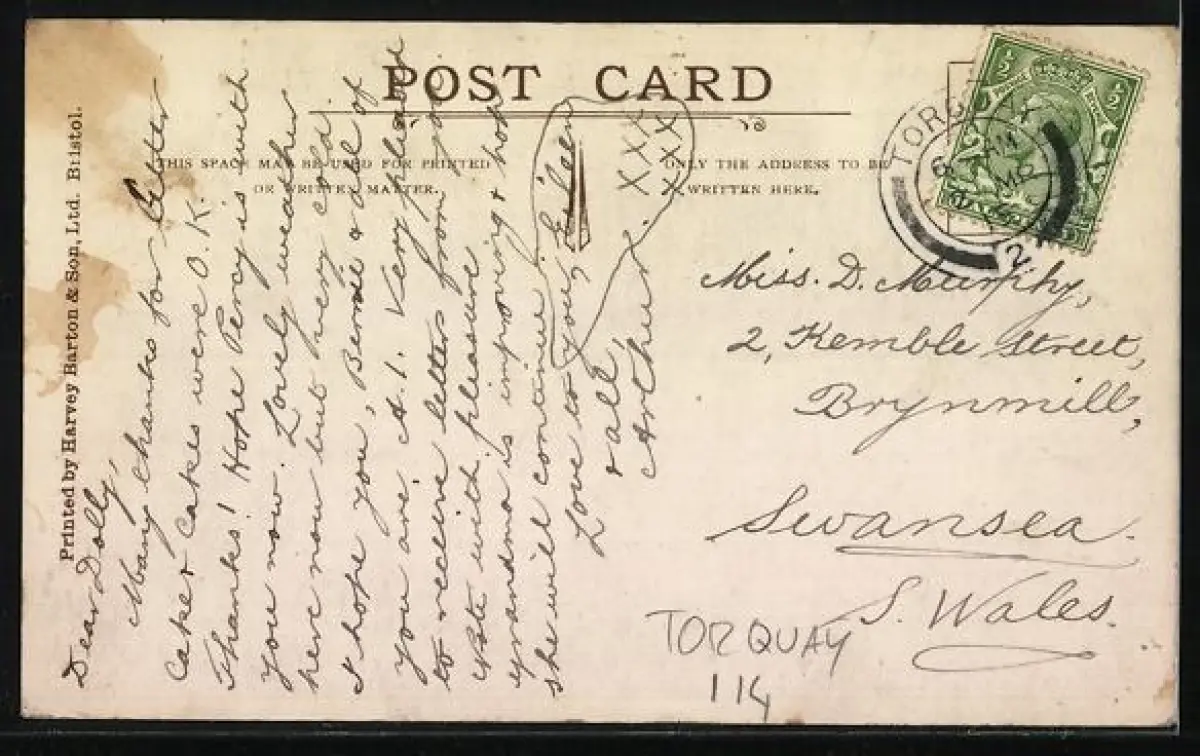 POST CARD
THIS SPACE MAY BE USED FOR PRINTED
OR WRITTEN MATTER.
ONLY THE ADDRESS TO BE
WRITTEN HERE.
Printed by Harvey Barton & Son, Ltd. Bristol.
Dear Dolly,
Many thanks for letter
cake & cakes were O.K.
Thanks! Hope Percy is with
you now. Lovely weather
here now but very cold.
I hope you, Bernie & all of
you are A.1. Very pleased
to receive letters from you
with pleasure
grandma is improving & hope
she will continue.
Love to you, Eileen
& all,
Arthur.
XXX
XXX
Miss. D. Murphy,
2, Kemble Street,
Brynmill,
Swansea.
S. Wales.
TORQUAY
114